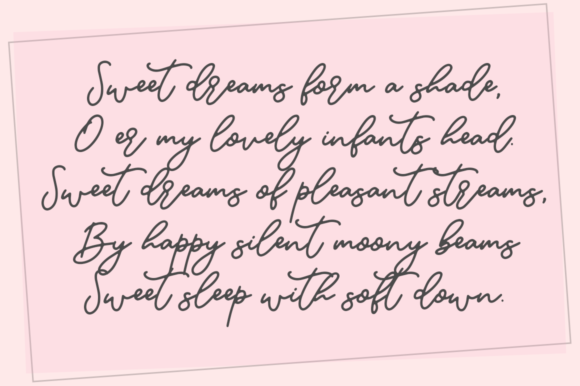 Sweet dreams form a shade,
O er my lovely infants head.
Sweet dreams of pleasant streams,
By happy silent moony beams
Sweet sleep with soft down.